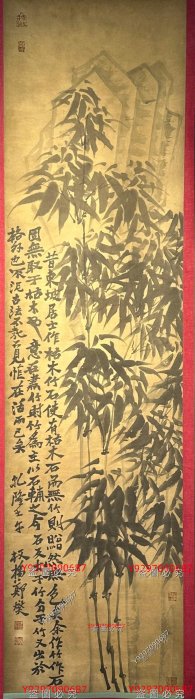 昔東坡居士作枯木竹石使有枯木石而無竹則黯然無色矣余作竹作石
固無取于枯木也意在畫竹則竹為主以石輔之今石反大于竹多于竹又出於
格外也不泥古法不執己見惟在活而已矣 乾隆壬午 板橋鄭燮
Y9297090687
Y9297090687
Y9297090687
Y9297090687